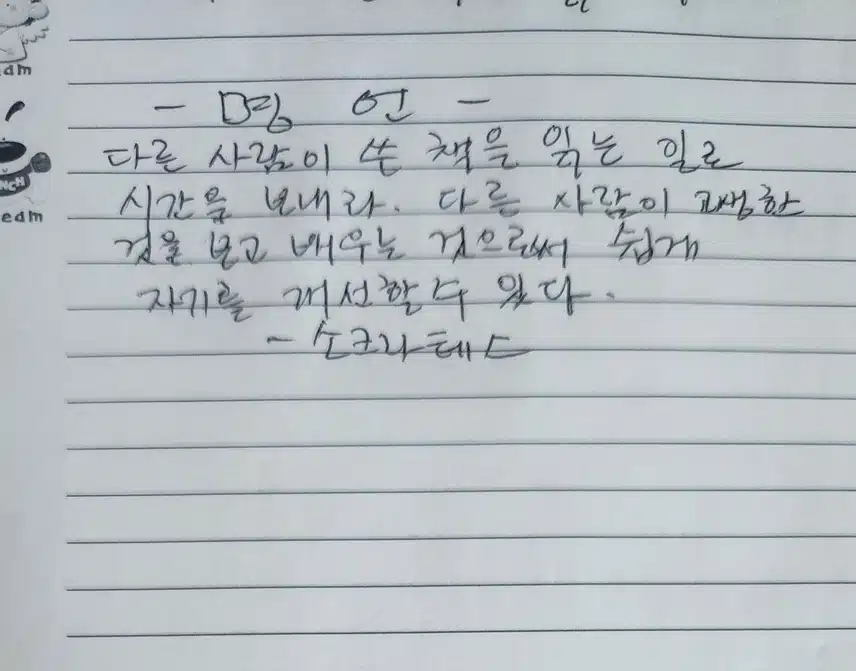 - 명 언 -
다른 사람이 쓴 책을 읽는 일로
시간을 보내라. 다른 사람이 고생한
것을 보고 배우는 것으로써 쉽게
자기를 개선할 수 있다.
- 소크라테스
edm
NCH
edm